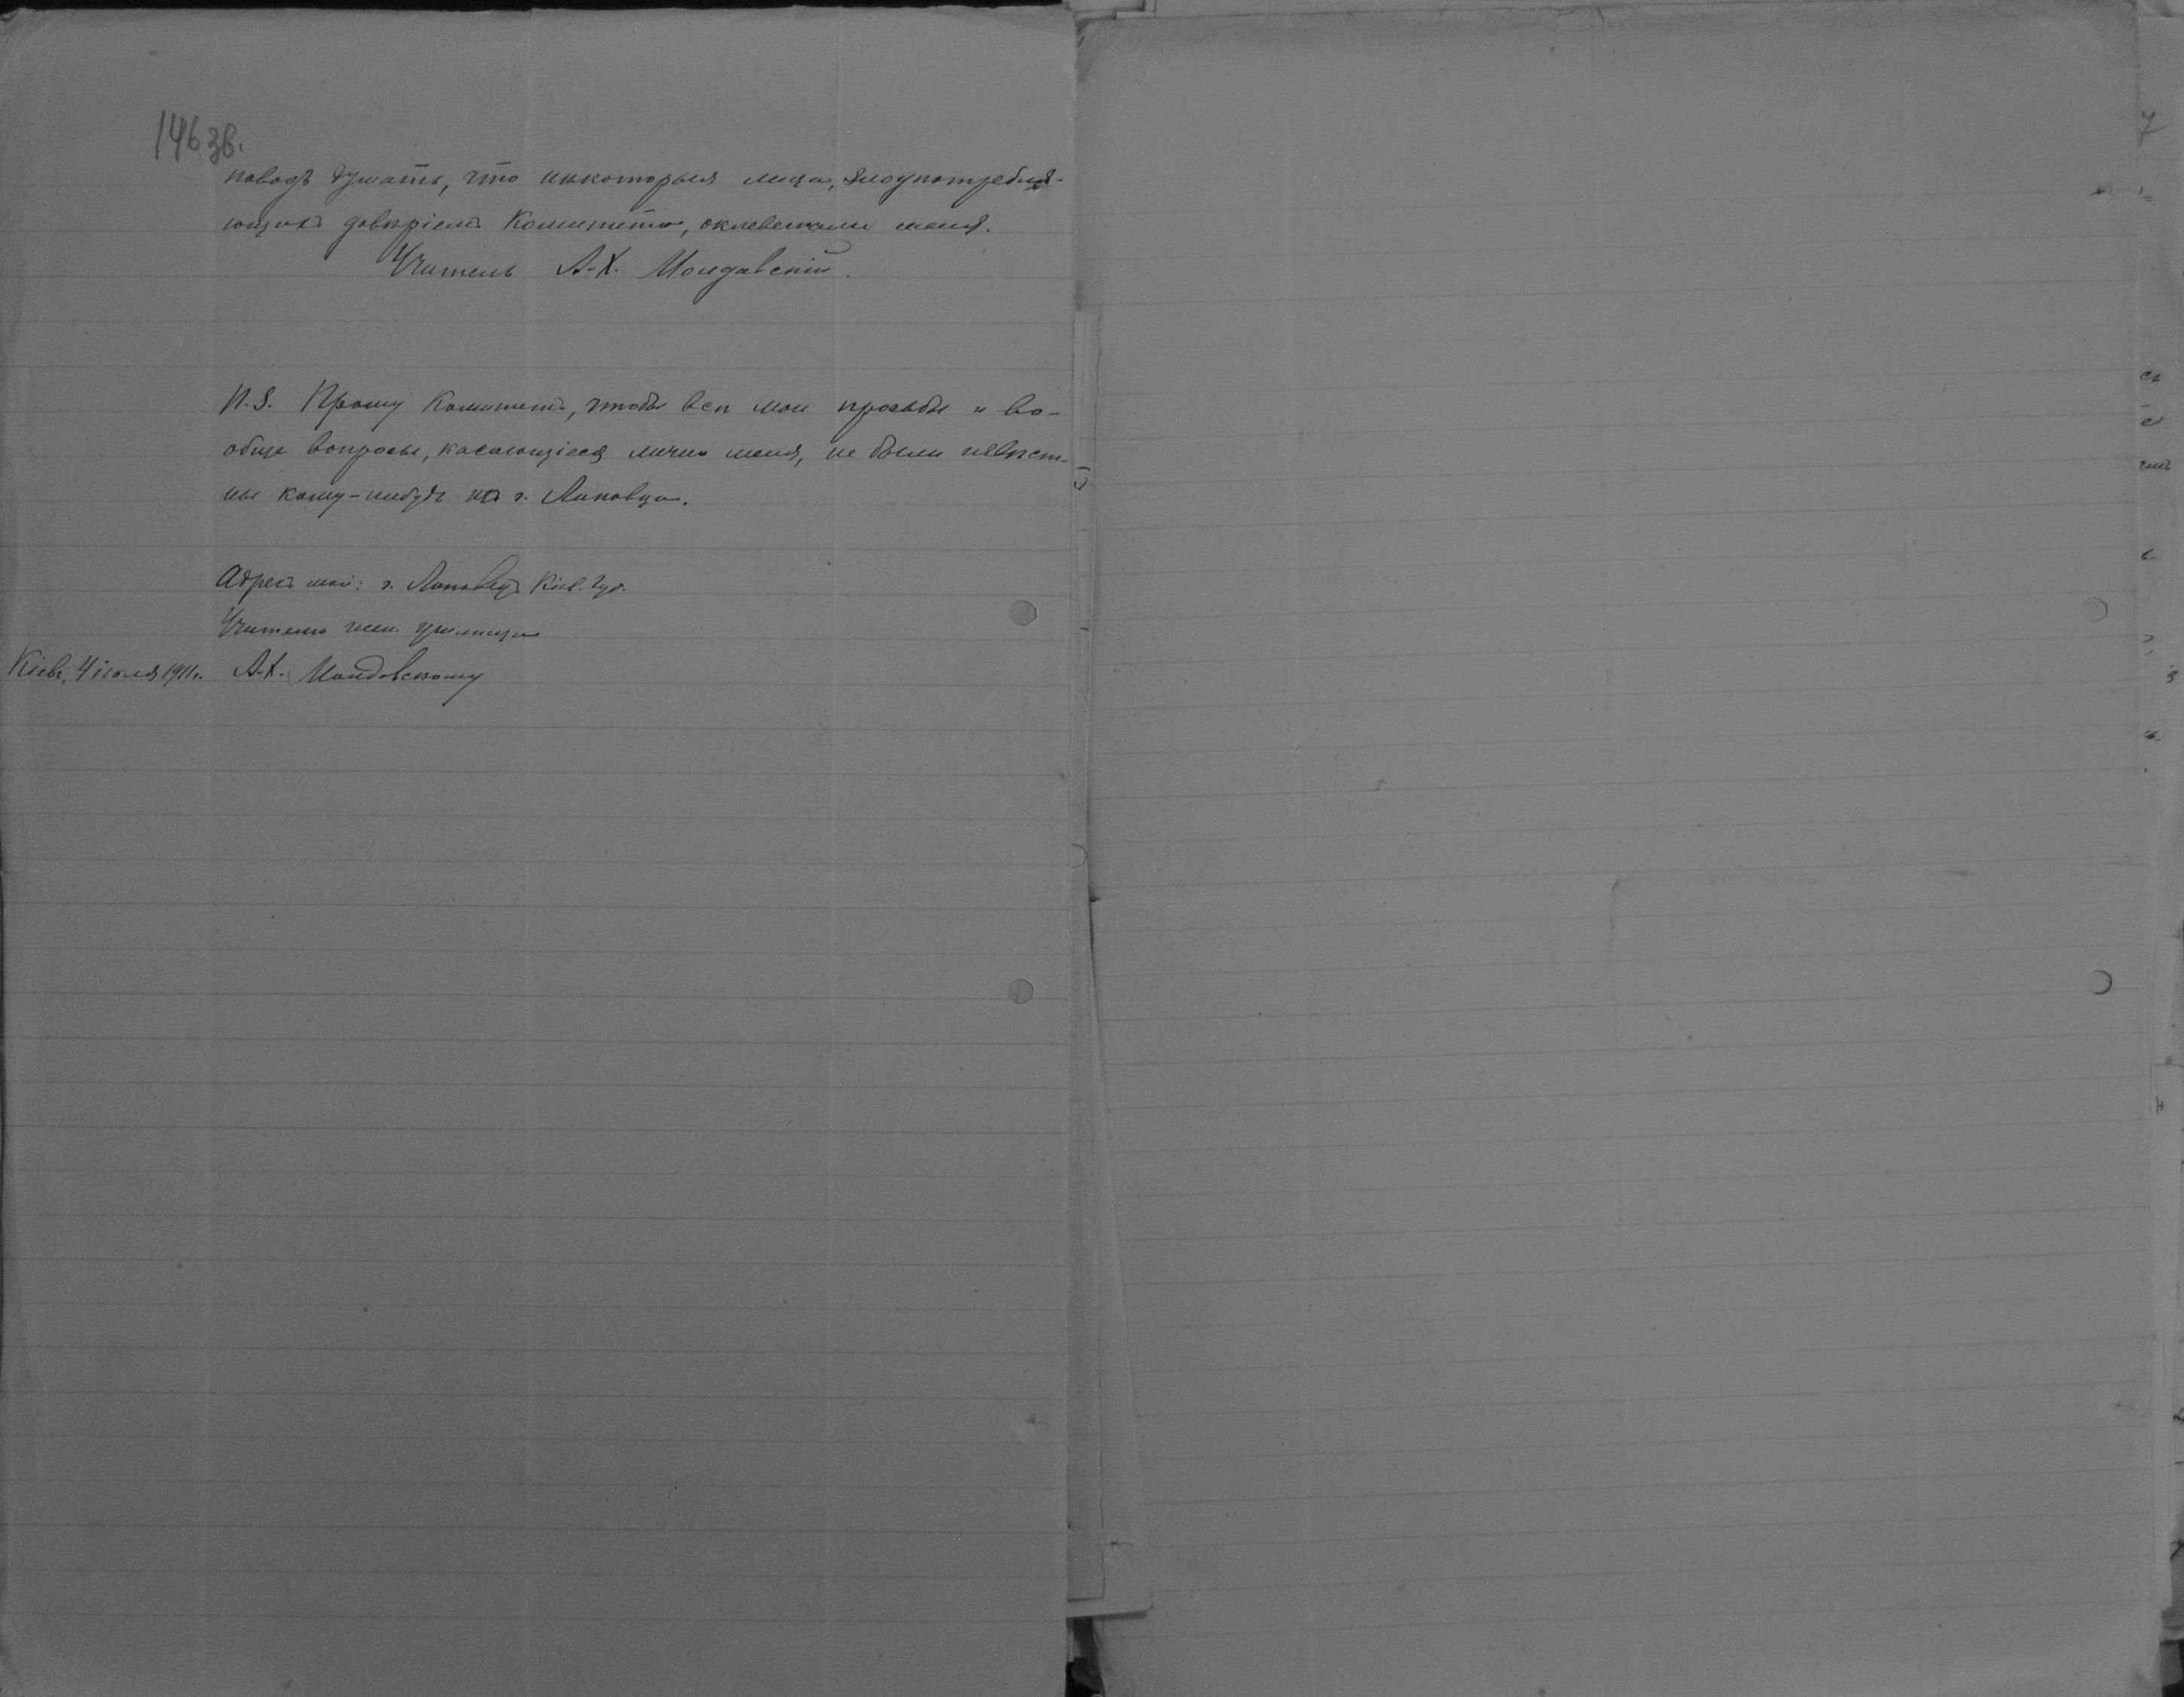 146 зв.
поводъ думать, что нѣкоторыя лица, злоупотребля-
ющія довѣріемъ Комитета, оклеветали меня.
Учитель А-Х. Молдавскій.
P.S. Прошу Комитетъ, чтобы всѣ мои просьбы и во-
обще вопросы, касающіеся лично меня, не были извѣст-
ны кому-нибудь из г. Липовца.
Адресъ мой: г. Липовецъ Кіев. губ.
Учителю училища
Кіевъ, 4 іюля 1911 г. А-Х. Молдавскому
7